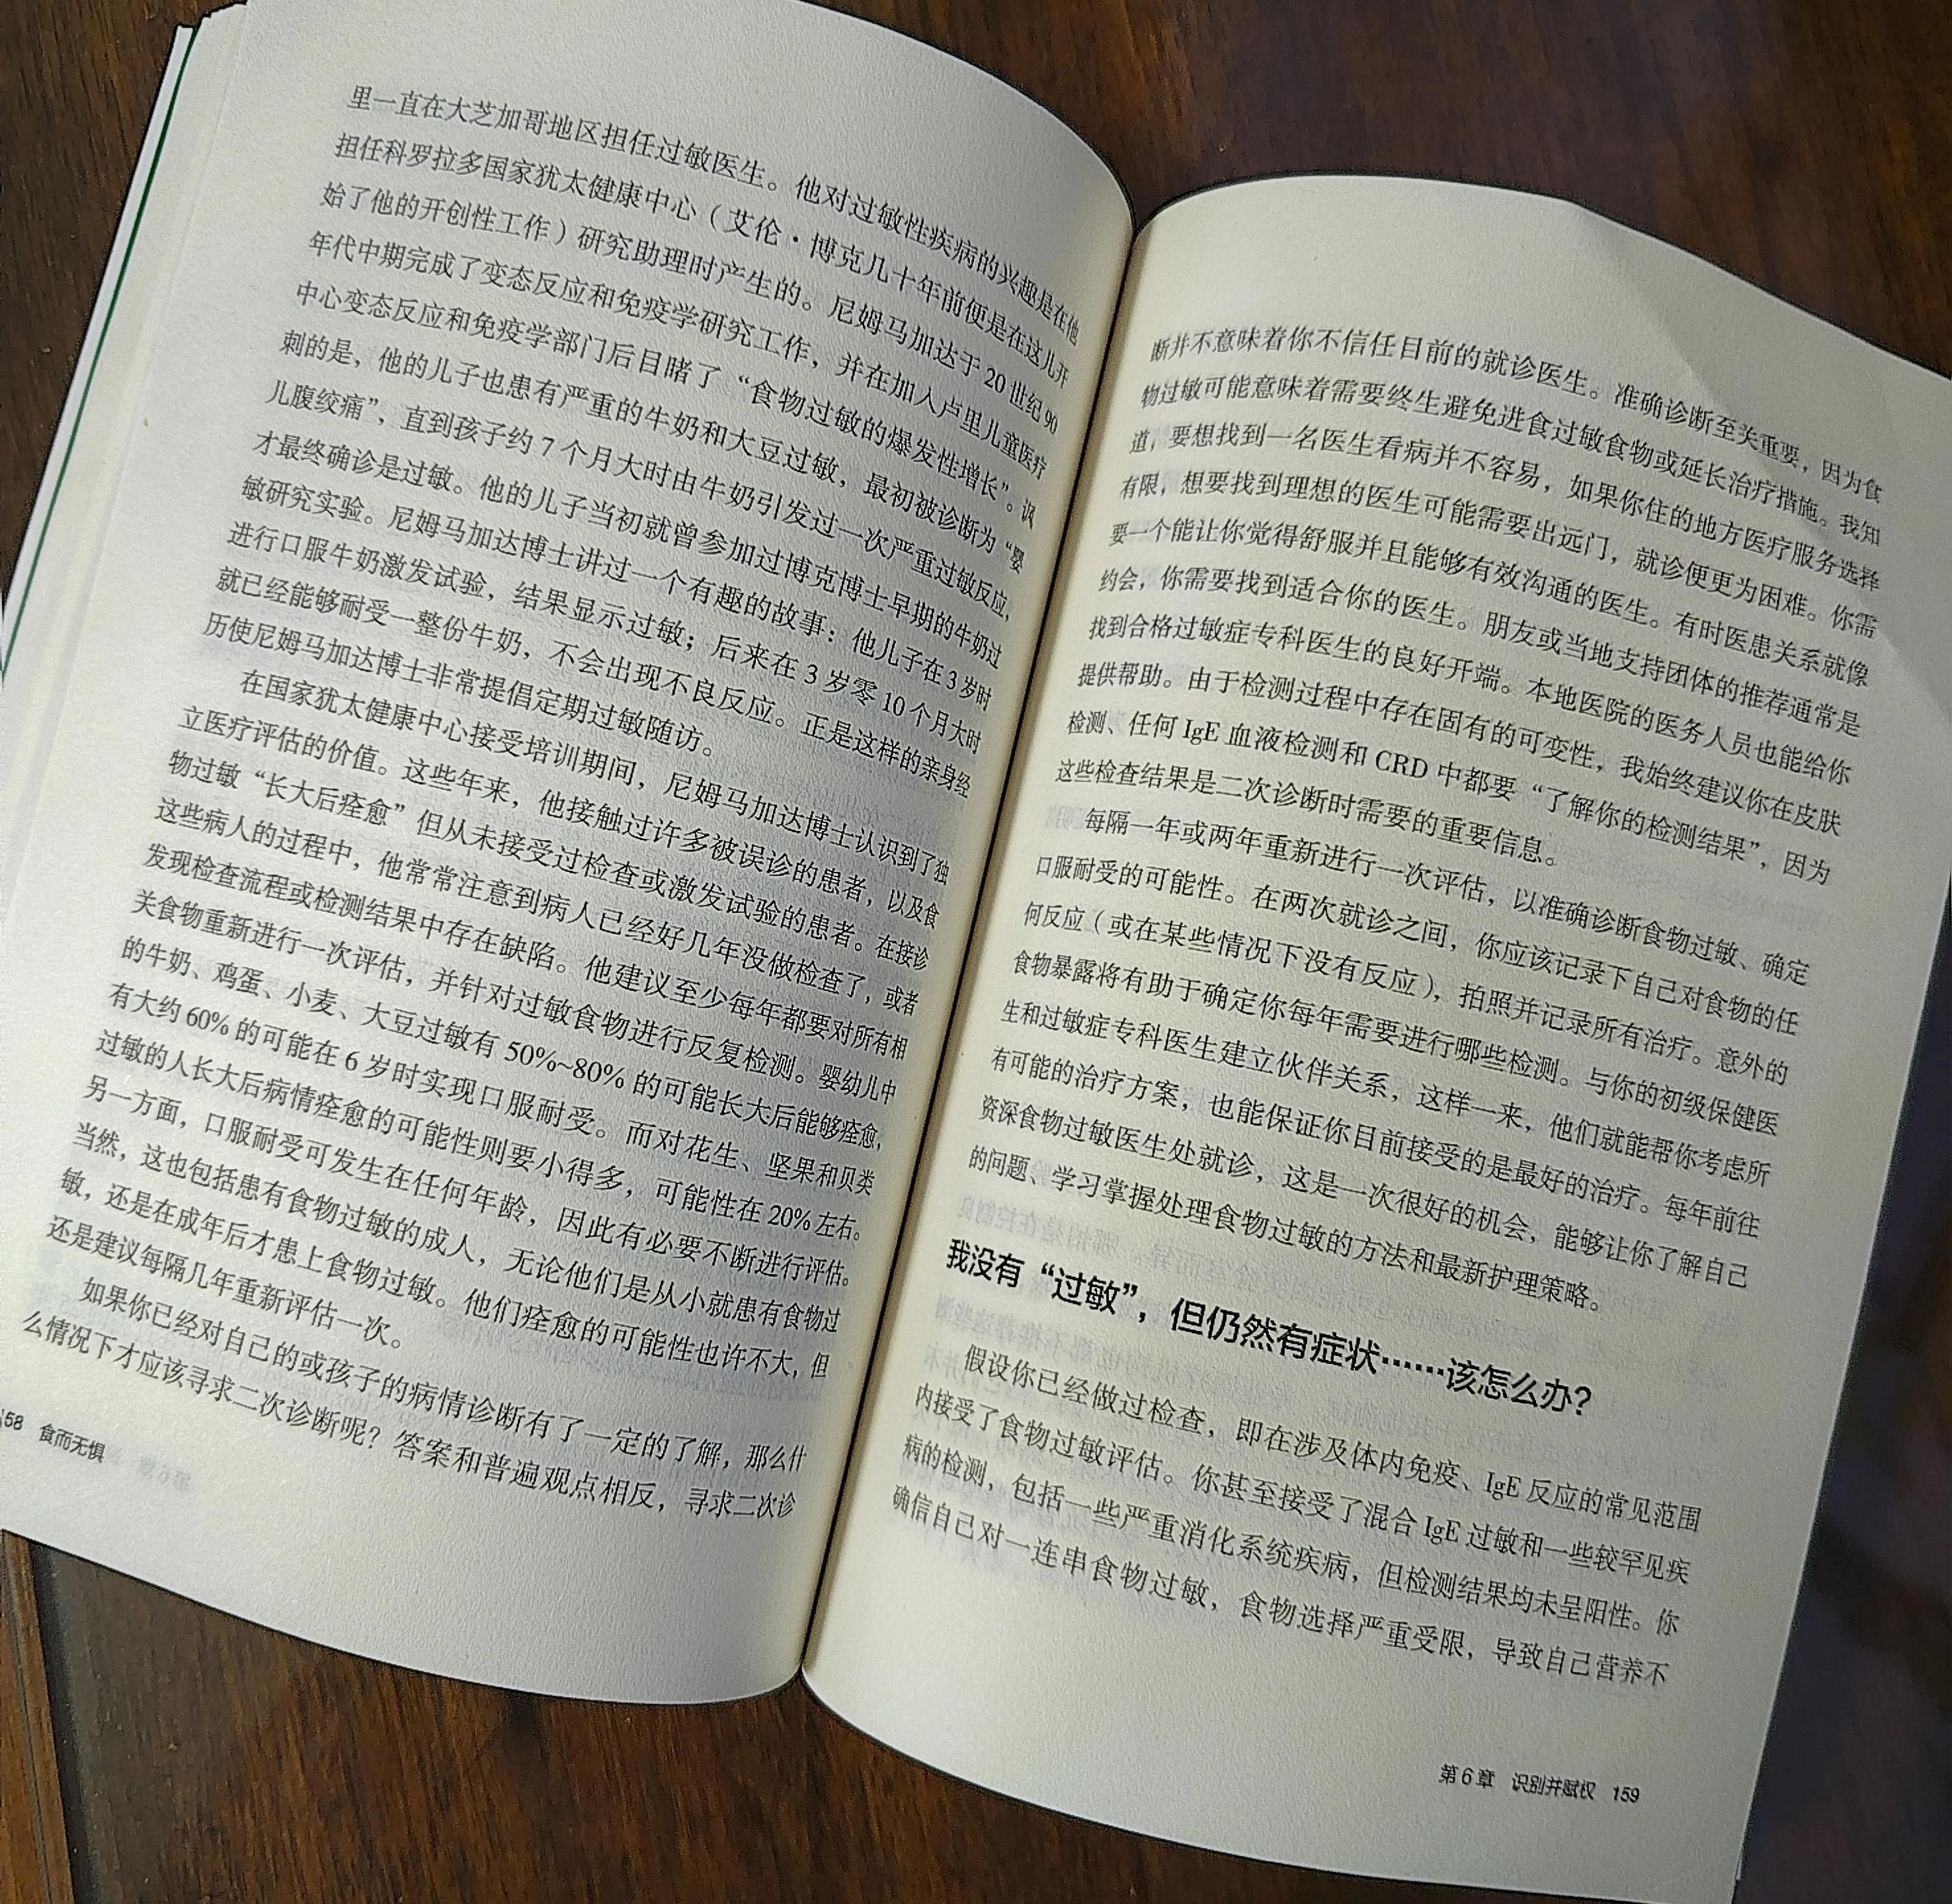 里一直在大芝加哥地区担任过敏医生。他对过敏性疾病的兴趣是在他
担任科罗拉多国家犹太健康中心（艾伦·博克几十年前便是在这儿开
始了他的开创性工作）研究助理时产生的。尼姆马加达于 20 世纪 90
年代中期完成了变态反应和免疫学研究工作，并在加入卢里儿童医疗
中心变态反应和免疫学部门后目睹了“食物过敏的爆发性增长”。讽
刺的是，他的儿子也患有严重的牛奶和大豆过敏，最初被诊断为“婴
儿腹绞痛”，直到孩子约 7 个月大时由牛奶引发过一次严重过敏反应，
才最终确诊是过敏。他的儿子当初就曾参加过博克博士早期的牛奶过
敏研究实验。尼姆马加达博士讲过一个有趣的故事：他儿子在 3 岁时
进行口服牛奶激发试验，结果显示过敏；后来在 3 岁零 10 个月大时
就已经能够耐受一整份牛奶，不会出现不良反应。正是这样的亲身经
历使尼姆马加达博士非常提倡定期过敏随访。
在国家犹太健康中心接受培训期间，尼姆马加达博士认识到了独
立医疗评估的价值。这些年来，他接触过许多被误诊的患者，以及食
物过敏“长大后痊愈”但从未接受过检查或激发试验的患者。在接诊
这些病人的过程中，他常常注意到病人已经好几年没做检查了，或者
发现检查流程或检测结果中存在缺陷。他建议至少每年都要对所有相
关食物重新进行一次评估，并针对过敏食物进行反复检测。婴幼儿中
的牛奶、鸡蛋、小麦、大豆过敏有 50%~80% 的可能长大后能够痊愈，
有大约 60% 的可能在 6 岁时实现口服耐受。而对花生、坚果和贝类
过敏的人长大后病情痊愈的可能性则要小得多，可能性在 20% 左右。
另一方面，口服耐受可发生在任何年龄，因此有必要不断进行评估。
当然，这也包括患有食物过敏的成人，无论他们是从小就患有食物过
敏，还是在成年后才患上食物过敏。他们痊愈的可能性也许不大，但
还是建议每隔几年重新评估一次。
如果你已经对自己的或孩子的病情诊断有了一定的了解，那么什
么情况下才应该寻求二次诊断呢？答案和普遍观点相反，寻求二次诊
58 食而无惧
断并不意味着你不信任目前的就诊医生。准确诊断至关重要，因为食
物过敏可能意味着需要终生避免进食过敏食物或延长治疗措施。我知
道，要想找到一名医生看病并不容易，如果你住的地方医疗服务选择
有限，想要找到理想的医生可能需要出远门，就诊便更为困难。你需
要一个能让你觉得舒服并且能够有效沟通的医生。有时医患关系就像
约会，你需要找到适合你的医生。朋友或当地支持团体的推荐通常是
找到合格过敏症专科医生的良好开端。本地医院的医务人员也能给你
提供帮助。由于检测过程中存在固有的可变性，我始终建议你在皮肤
检测、任何 IgE 血液检测和 CRD 中都要“了解你的检测结果”，因为
这些检查结果是二次诊断时需要的重要信息。
每隔一年或两年重新进行一次评估，以准确诊断食物过敏、确定
口服耐受的可能性。在两次就诊之间，你应该记录下自己对食物的任
何反应（或在某些情况下没有反应），拍照并记录所有治疗。意外的
食物暴露将有助于确定你每年需要进行哪些检测。与你的初级保健医
生和过敏症专科医生建立伙伴关系，这样一来，他们就能帮你考虑所
有可能的治疗方案，也能保证你目前接受的是最好的治疗。每年前往
资深食物过敏医生处就诊，这是一次很好的机会，能够让你了解自己
的问题、学习掌握处理食物过敏的方法和最新护理策略。
我没有“过敏”，但仍然有症状……该怎么办？
假设你已经做过检查，即在涉及体内免疫、IgE 反应的常见范围
内接受了食物过敏评估。你甚至接受了混合 IgE 过敏和一些较罕见疾
病的检测，包括一些严重消化系统疾病，但检测结果均未呈阳性。你
确信自己对一连串食物过敏，食物选择严重受限，导致自己营养不
第 6 章 识别并赋权 159